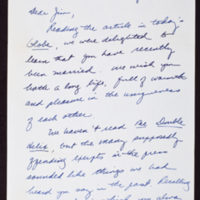 Dear Jim,
Reading the article in today's
Globe, we were delighted to
learn that you have recently
been married. We wish you
both a long life, full of warmth
and pleasure in the uniqueness
of each other.
We haven't read The Double
Helix, but the many supposedly
offending excerpts in the press
sounded like things we had
heard you say in the past. Recalling
which you